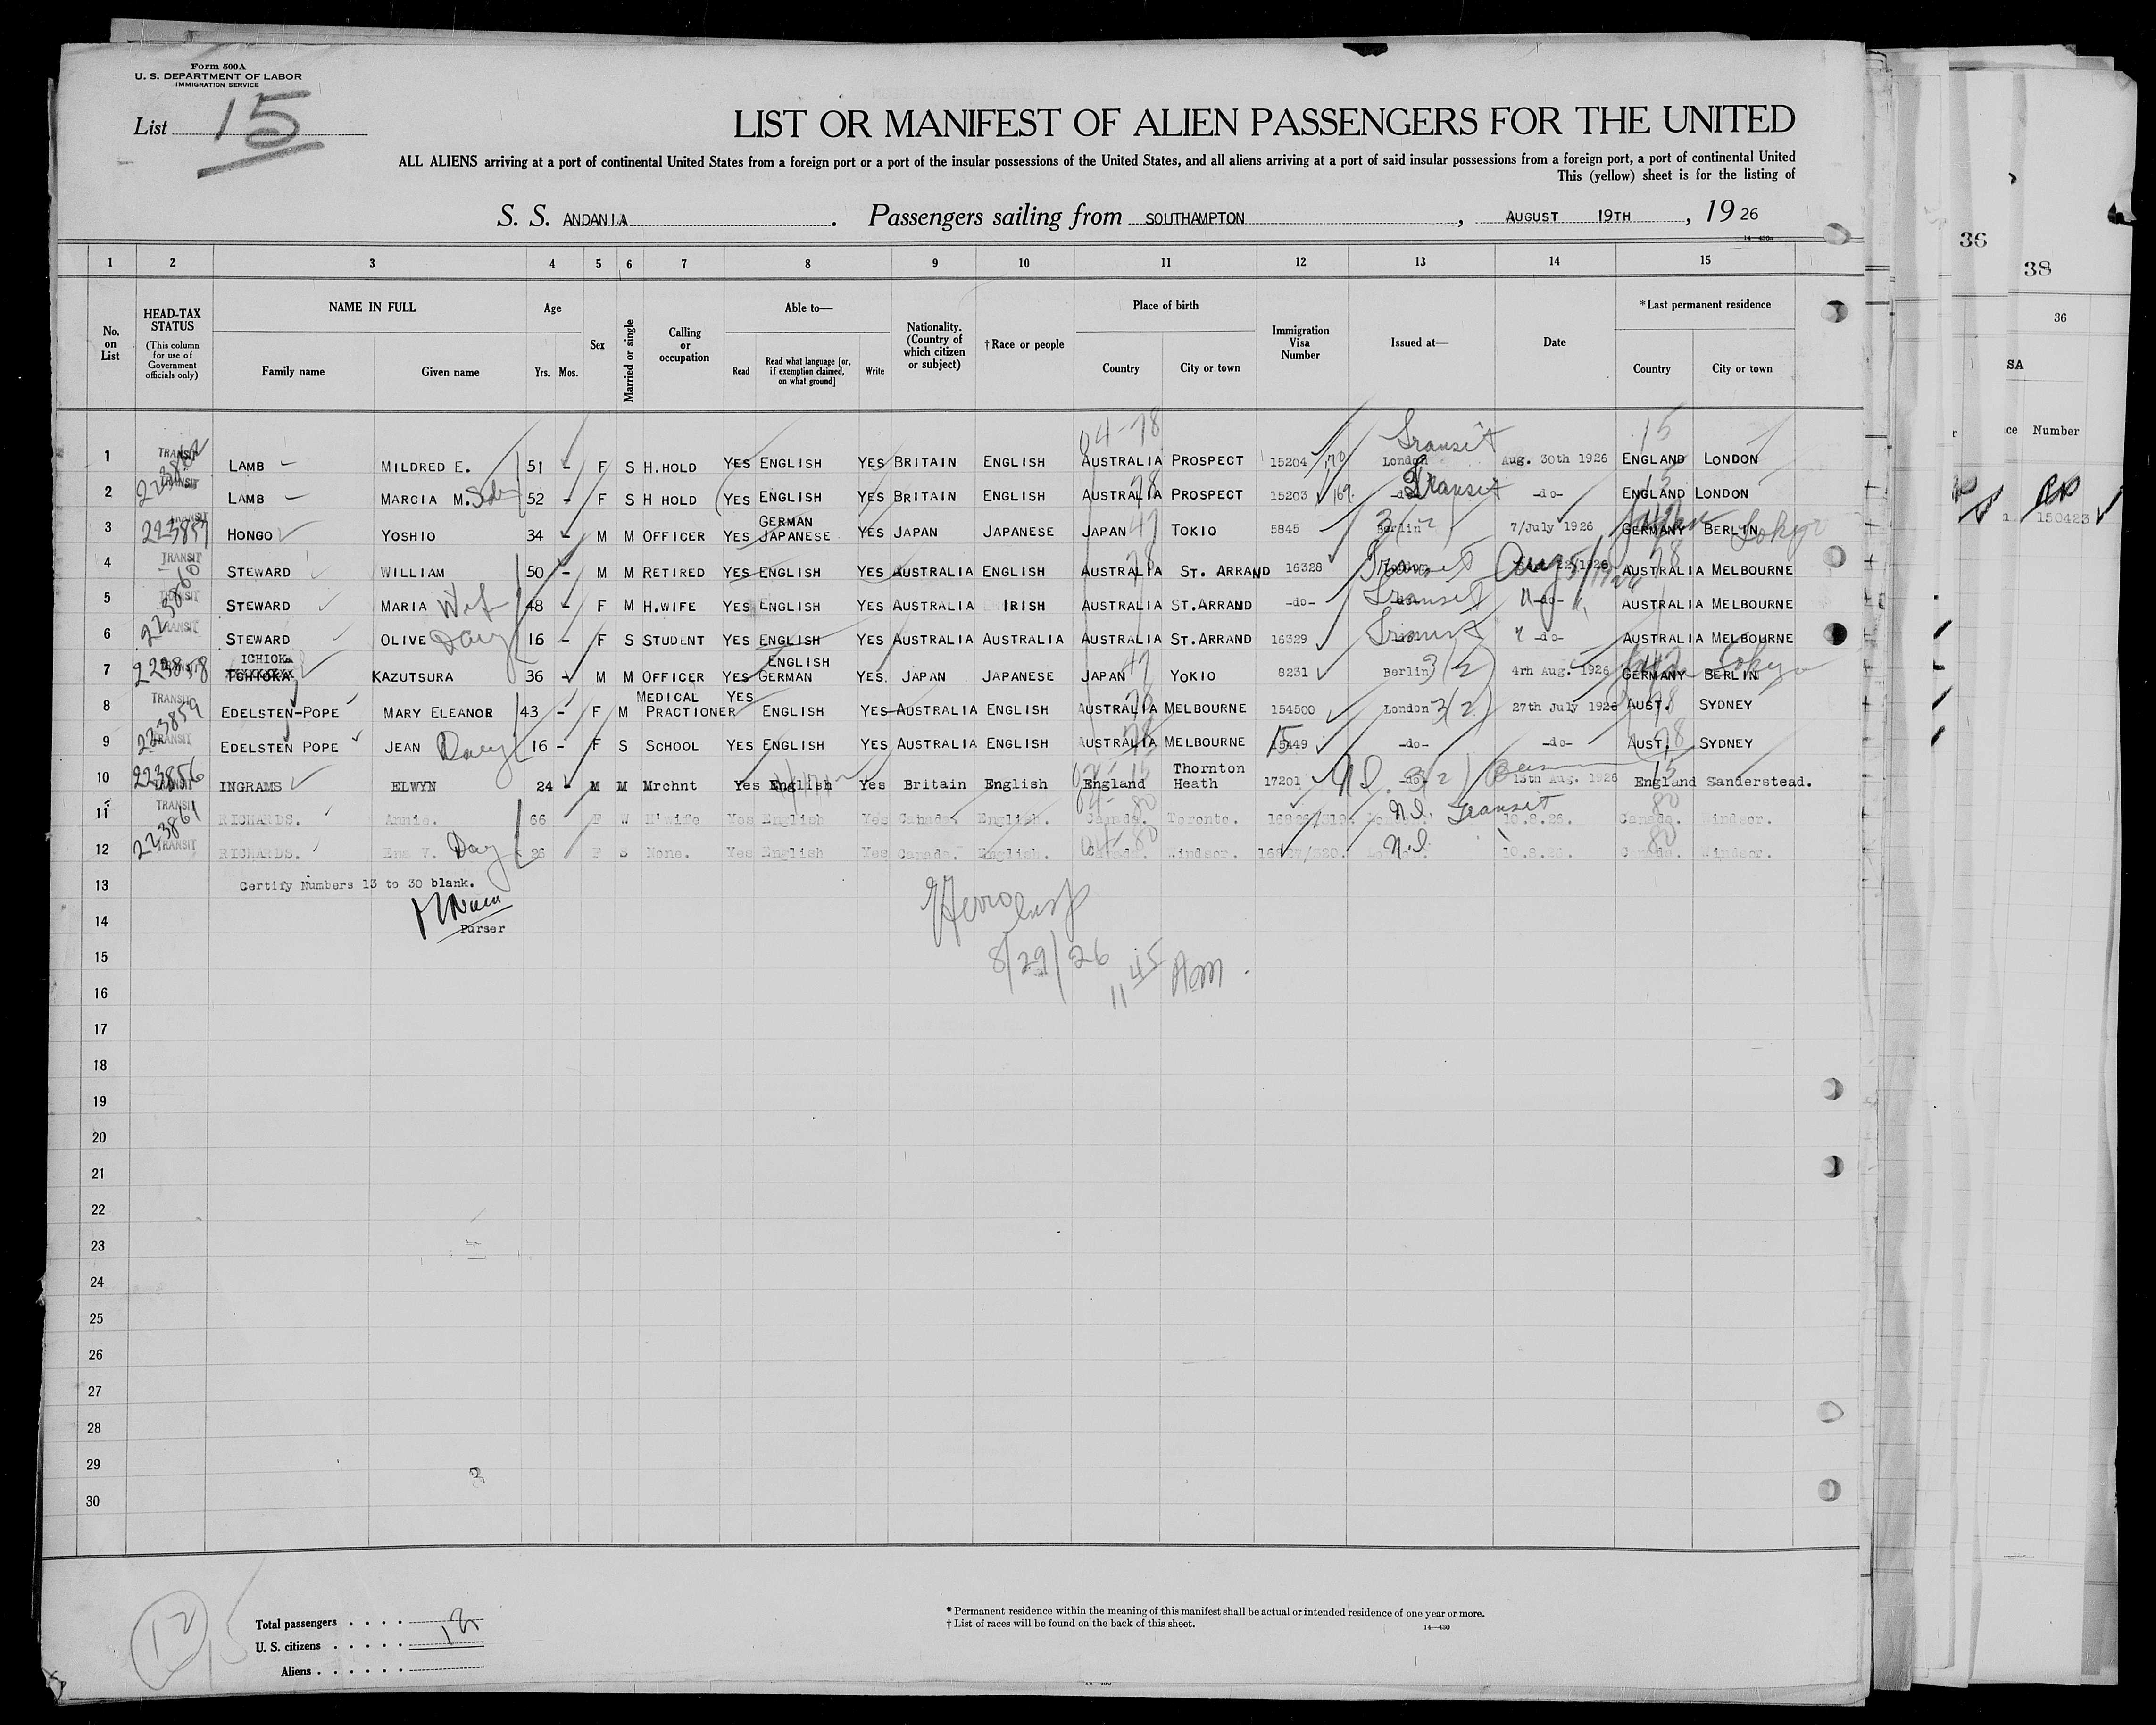 Form 500A
U. S. DEPARTMENT OF LABOR
IMMIGRATION SERVICE
List 15
LIST OR MANIFEST OF ALIEN PASSENGERS FOR THE UNITED
ALL ALIENS arriving at a port of continental United States from a foreign port or a port of the insular possessions of the United States, and all aliens arriving at a port of said insular possessions from a foreign port, a port of continental United
This (yellow) sheet is for the listing of
S. S. ANDANIA. Passengers sailing from SOUTHAMPTON, AUGUST 19TH, 19 26
36
38
1 2 3 4 5 6 7 8 9 10 11 12 13 14 15
36
No. on List
HEAD-TAX STATUS
(This column for use of Government officials only)
NAME IN FULL
Family name Given name
Age
Yrs. Mos.
Sex
Married or single
Calling or occupation
Able to—
Read Read what language [or, if exemption claimed, on what ground] Write
Nationality. (Country of which citizen or subject)
†Race or people
Place of birth
Country City or town
Immigration Visa Number
Issued at—
Date
*Last permanent residence
Country City or town
SA
Number
04-78 Transit 15
1 TRANSIT LAMB MILDRED E. 51 - F S H.HOLD YES ENGLISH YES BRITAIN ENGLISH AUSTRALIA PROSPECT 15204 London Aug. 30th 1926 ENGLAND LONDON
2 TRANSIT LAMB MARCIA M. 52 - F S H HOLD YES ENGLISH YES BRITAIN ENGLISH AUSTRALIA PROSPECT 15203 -do- Transit -do- ENGLAND LONDON
3 TRANSIT 223857 HONGO YOSHIO 34 - M M OFFICER YES GERMAN JAPANESE YES JAPAN JAPANESE JAPAN 47 TOKIO 5845 Berlin 3(2) 7/July 1926 GERMANY BERLIN Tokyo
150423
4 TRANSIT STEWARD WILLIAM 50 - M M RETIRED YES ENGLISH YES AUSTRALIA ENGLISH AUSTRALIA 78 ST. ARRAND 16328 Transit Aug 5/1926 AUSTRALIA MELBOURNE
5 TRANSIT STEWARD MARIA Wife 48 - F M H.WIFE YES ENGLISH YES AUSTRALIA IRISH AUSTRALIA ST.ARRAND -do- Transit -do- AUSTRALIA MELBOURNE
6 TRANSIT STEWARD OLIVE Daug 16 - F S STUDENT YES ENGLISH YES AUSTRALIA AUSTRALIA AUSTRALIA ST.ARRAND 16329 Transit -do- AUSTRALIA MELBOURNE
7 223858 ICHIOKA KAZUTSURA 36 - M M OFFICER YES ENGLISH GERMAN YES. JAPAN JAPANESE JAPAN 47 YOKIO 8231 Berlin 3(2) 4rh Aug. 1926 GERMANY BERLIN Tokyo
8 TRANSIT 223859 EDELSTEN-POPE MARY ELEANOR 43 - F M MEDICAL PRACTIONER YES ENGLISH YES AUSTRALIA ENGLISH AUSTRALIA 78 MELBOURNE 154500 London 3(2) 27th July 1926 AUST. 78 SYDNEY
9 TRANSIT EDELSTEN POPE JEAN Daug 16 - F S SCHOOL YES ENGLISH YES AUSTRALIA ENGLISH AUSTRALIA 78 MELBOURNE 15449 -do- -do- AUST. 78 SYDNEY
10 223856 TRANSIT INGRAMS ELWYN 24 - M M Mrchnt Yes English Yes Britain English England Thornton Heath 17201 -do- 3(2) 13th Aug. 1926 England Sanderstead.
11 TRANSIT 223861 RICHARDS. Annie. 66 F W H'wife Yes English Yes Canada. English. Canada. 80 Toronto. Transit 10.8.26. Canada. 80 Windsor.
12 TRANSIT RICHARDS. Ena V. Daug 26 F S None. Yes English Yes Canada. English. Canada. 80 Windsor. 10.8.26. Canada. 80 Windsor.
13 Certify Numbers 13 to 30 blank.
14 Purser
8/29/26
15
11 45 AM.
16
17
18
19
20
21
22
23
24
25
26
27
28
29
30
12
Total passengers . . . . 12
U. S. citizens . . . . .
Aliens . . . . . .
* Permanent residence within the meaning of this manifest shall be actual or intended residence of one year or more.
† List of races will be found on the back of this sheet.
14—430